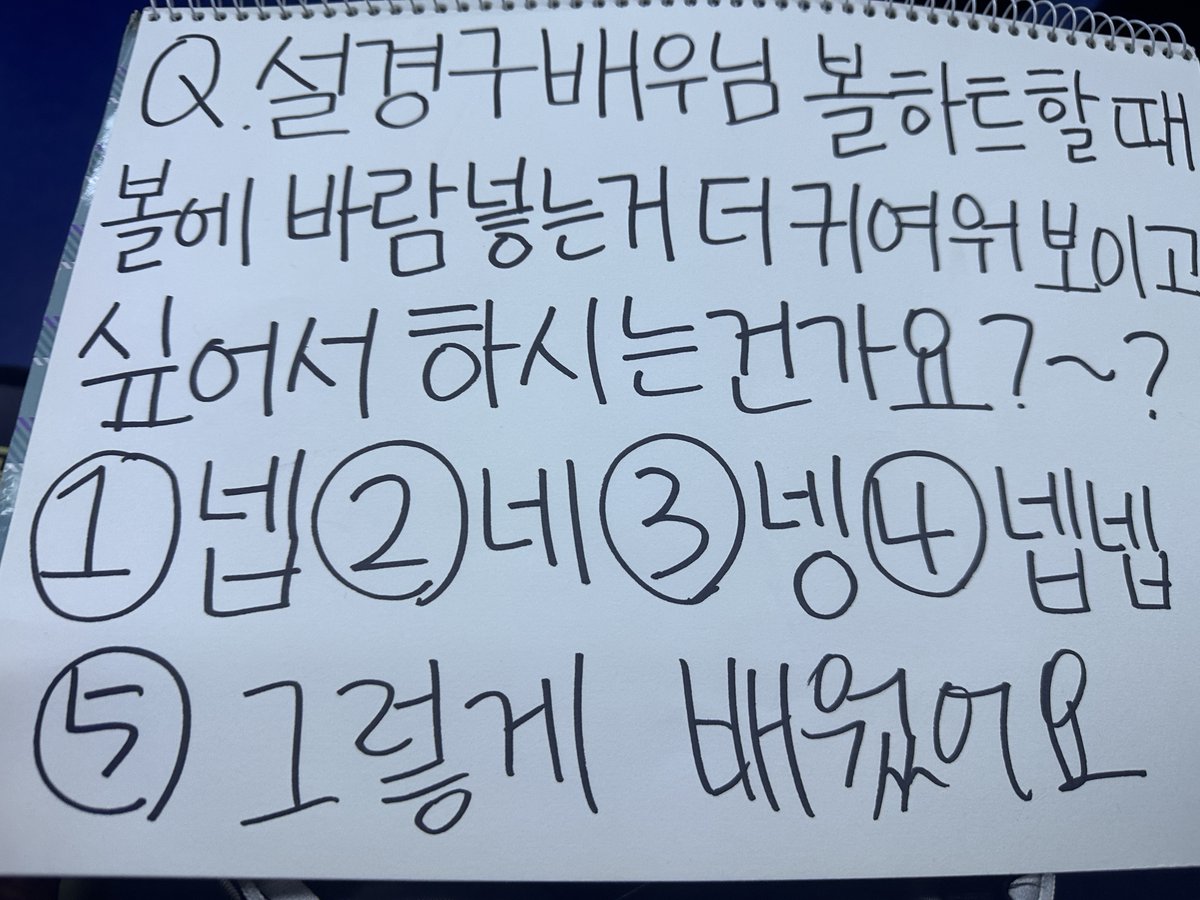 Q.설경구배우님 볼하트할 때
볼에 바람넣는거 더 귀여워 보이고
싶어서 하시는건가요?~?
① 넵 ② 네 ③ 넹 ④ 넵넵
⑤ 그렇게 배웠어요